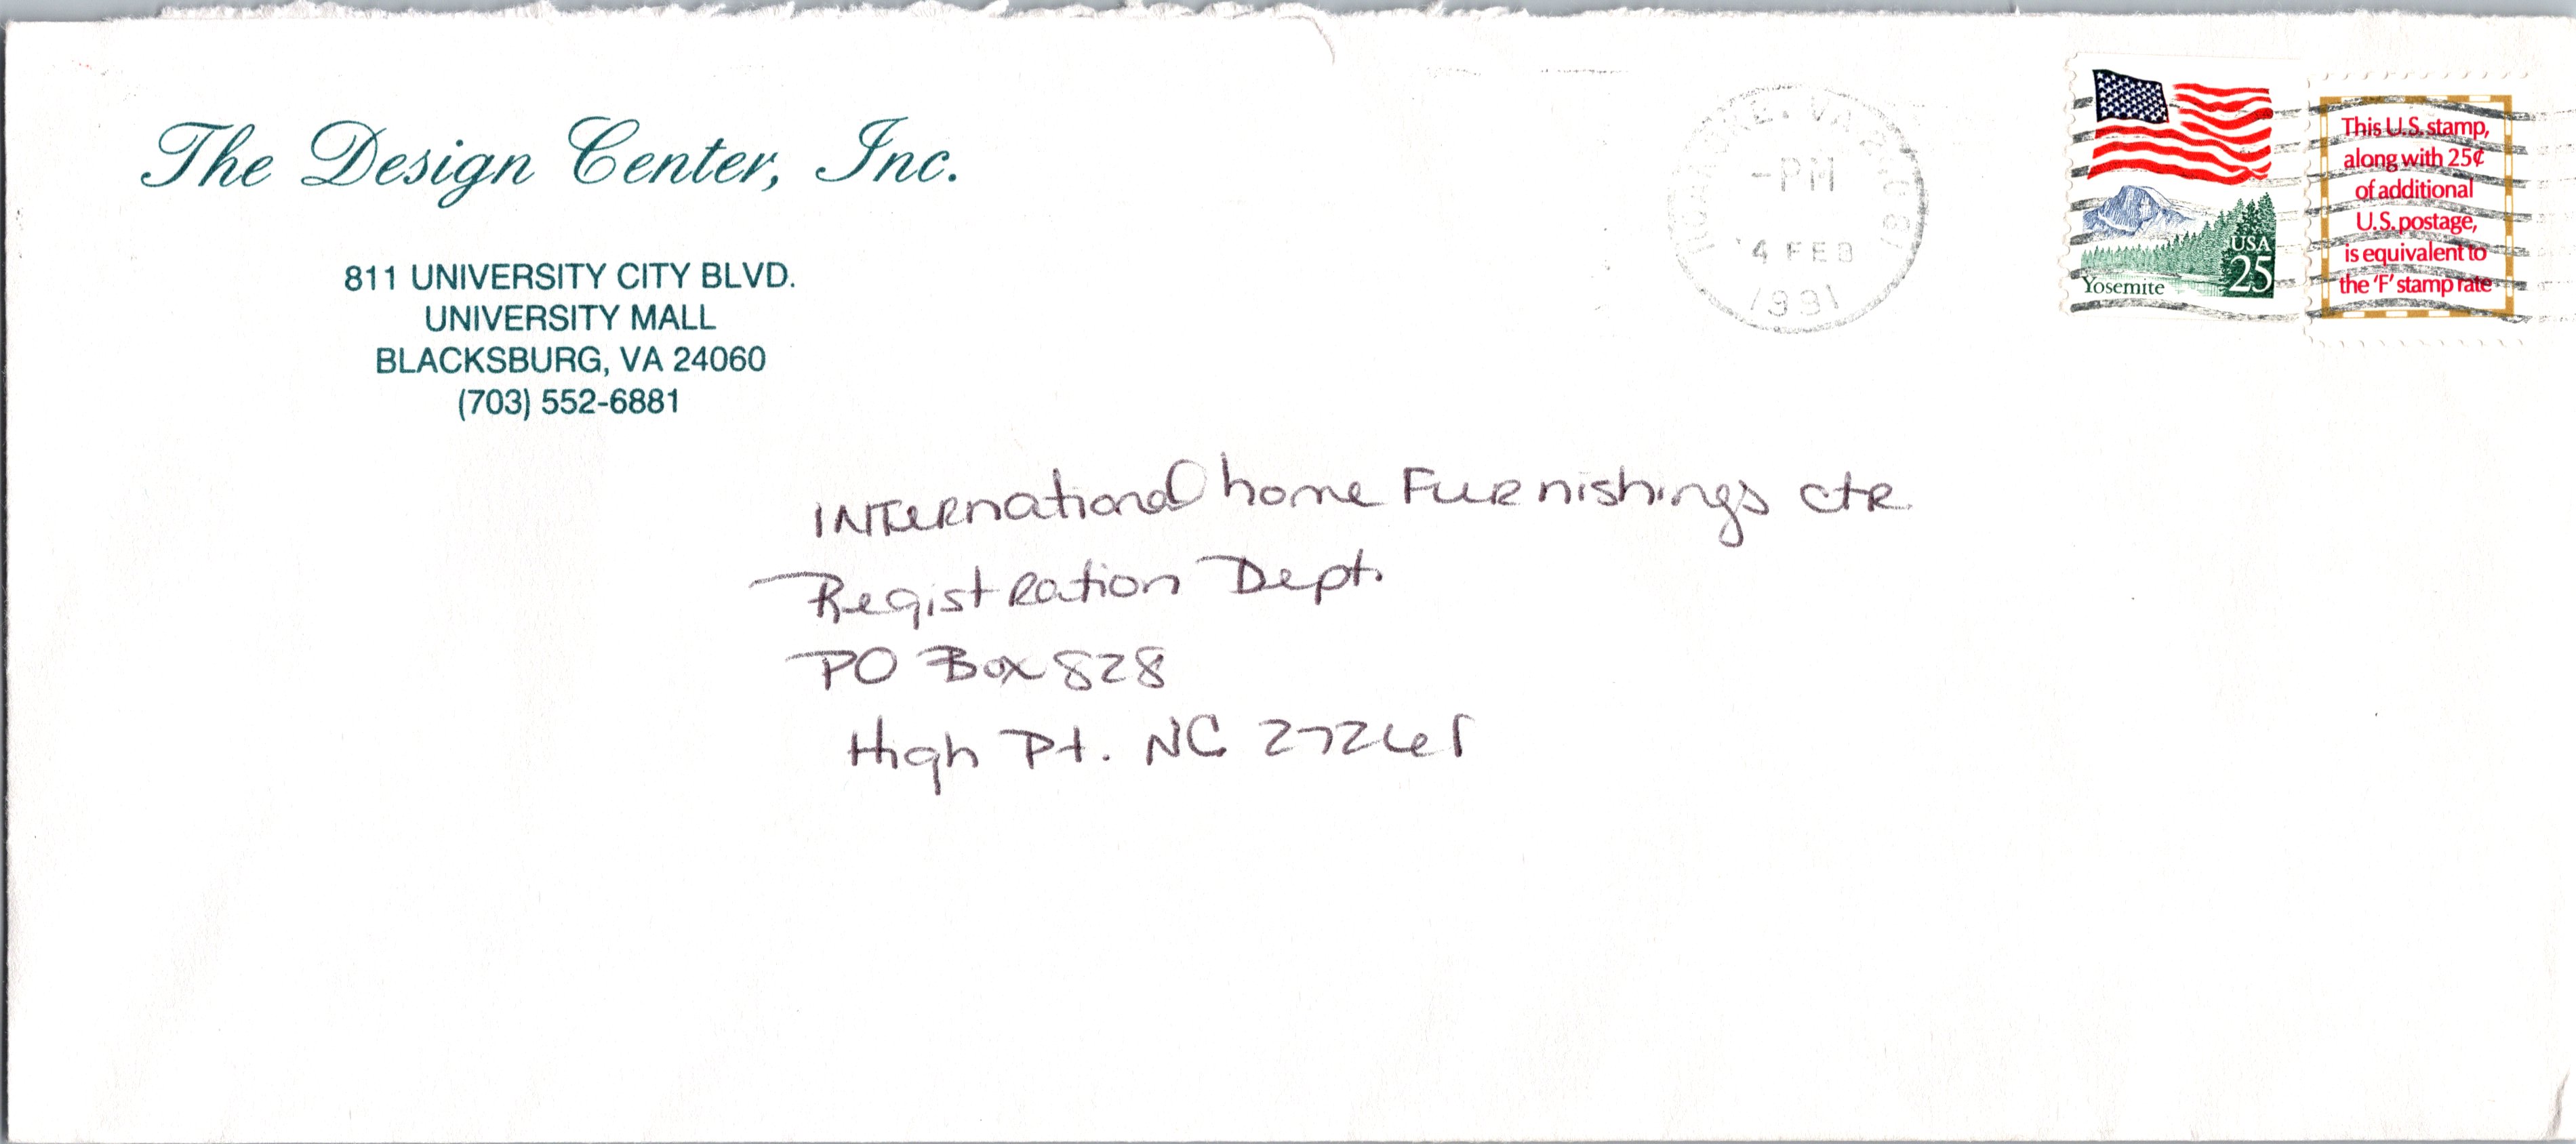 The Design Center, Inc.
811 UNIVERSITY CITY BLVD.
UNIVERSITY MALL
BLACKSBURG, VA 24060
(703) 552-6881
VA
-PM
4 FEB
1991
USA
25
Yosemite
This U.S. stamp,
along with 25¢
of additional
U.S. postage,
is equivalent to
the 'F' stamp rate
INTERnational home FuRnishings ctR.
RegistRation Dept.
PO Box 828
High Pt. NC 27261